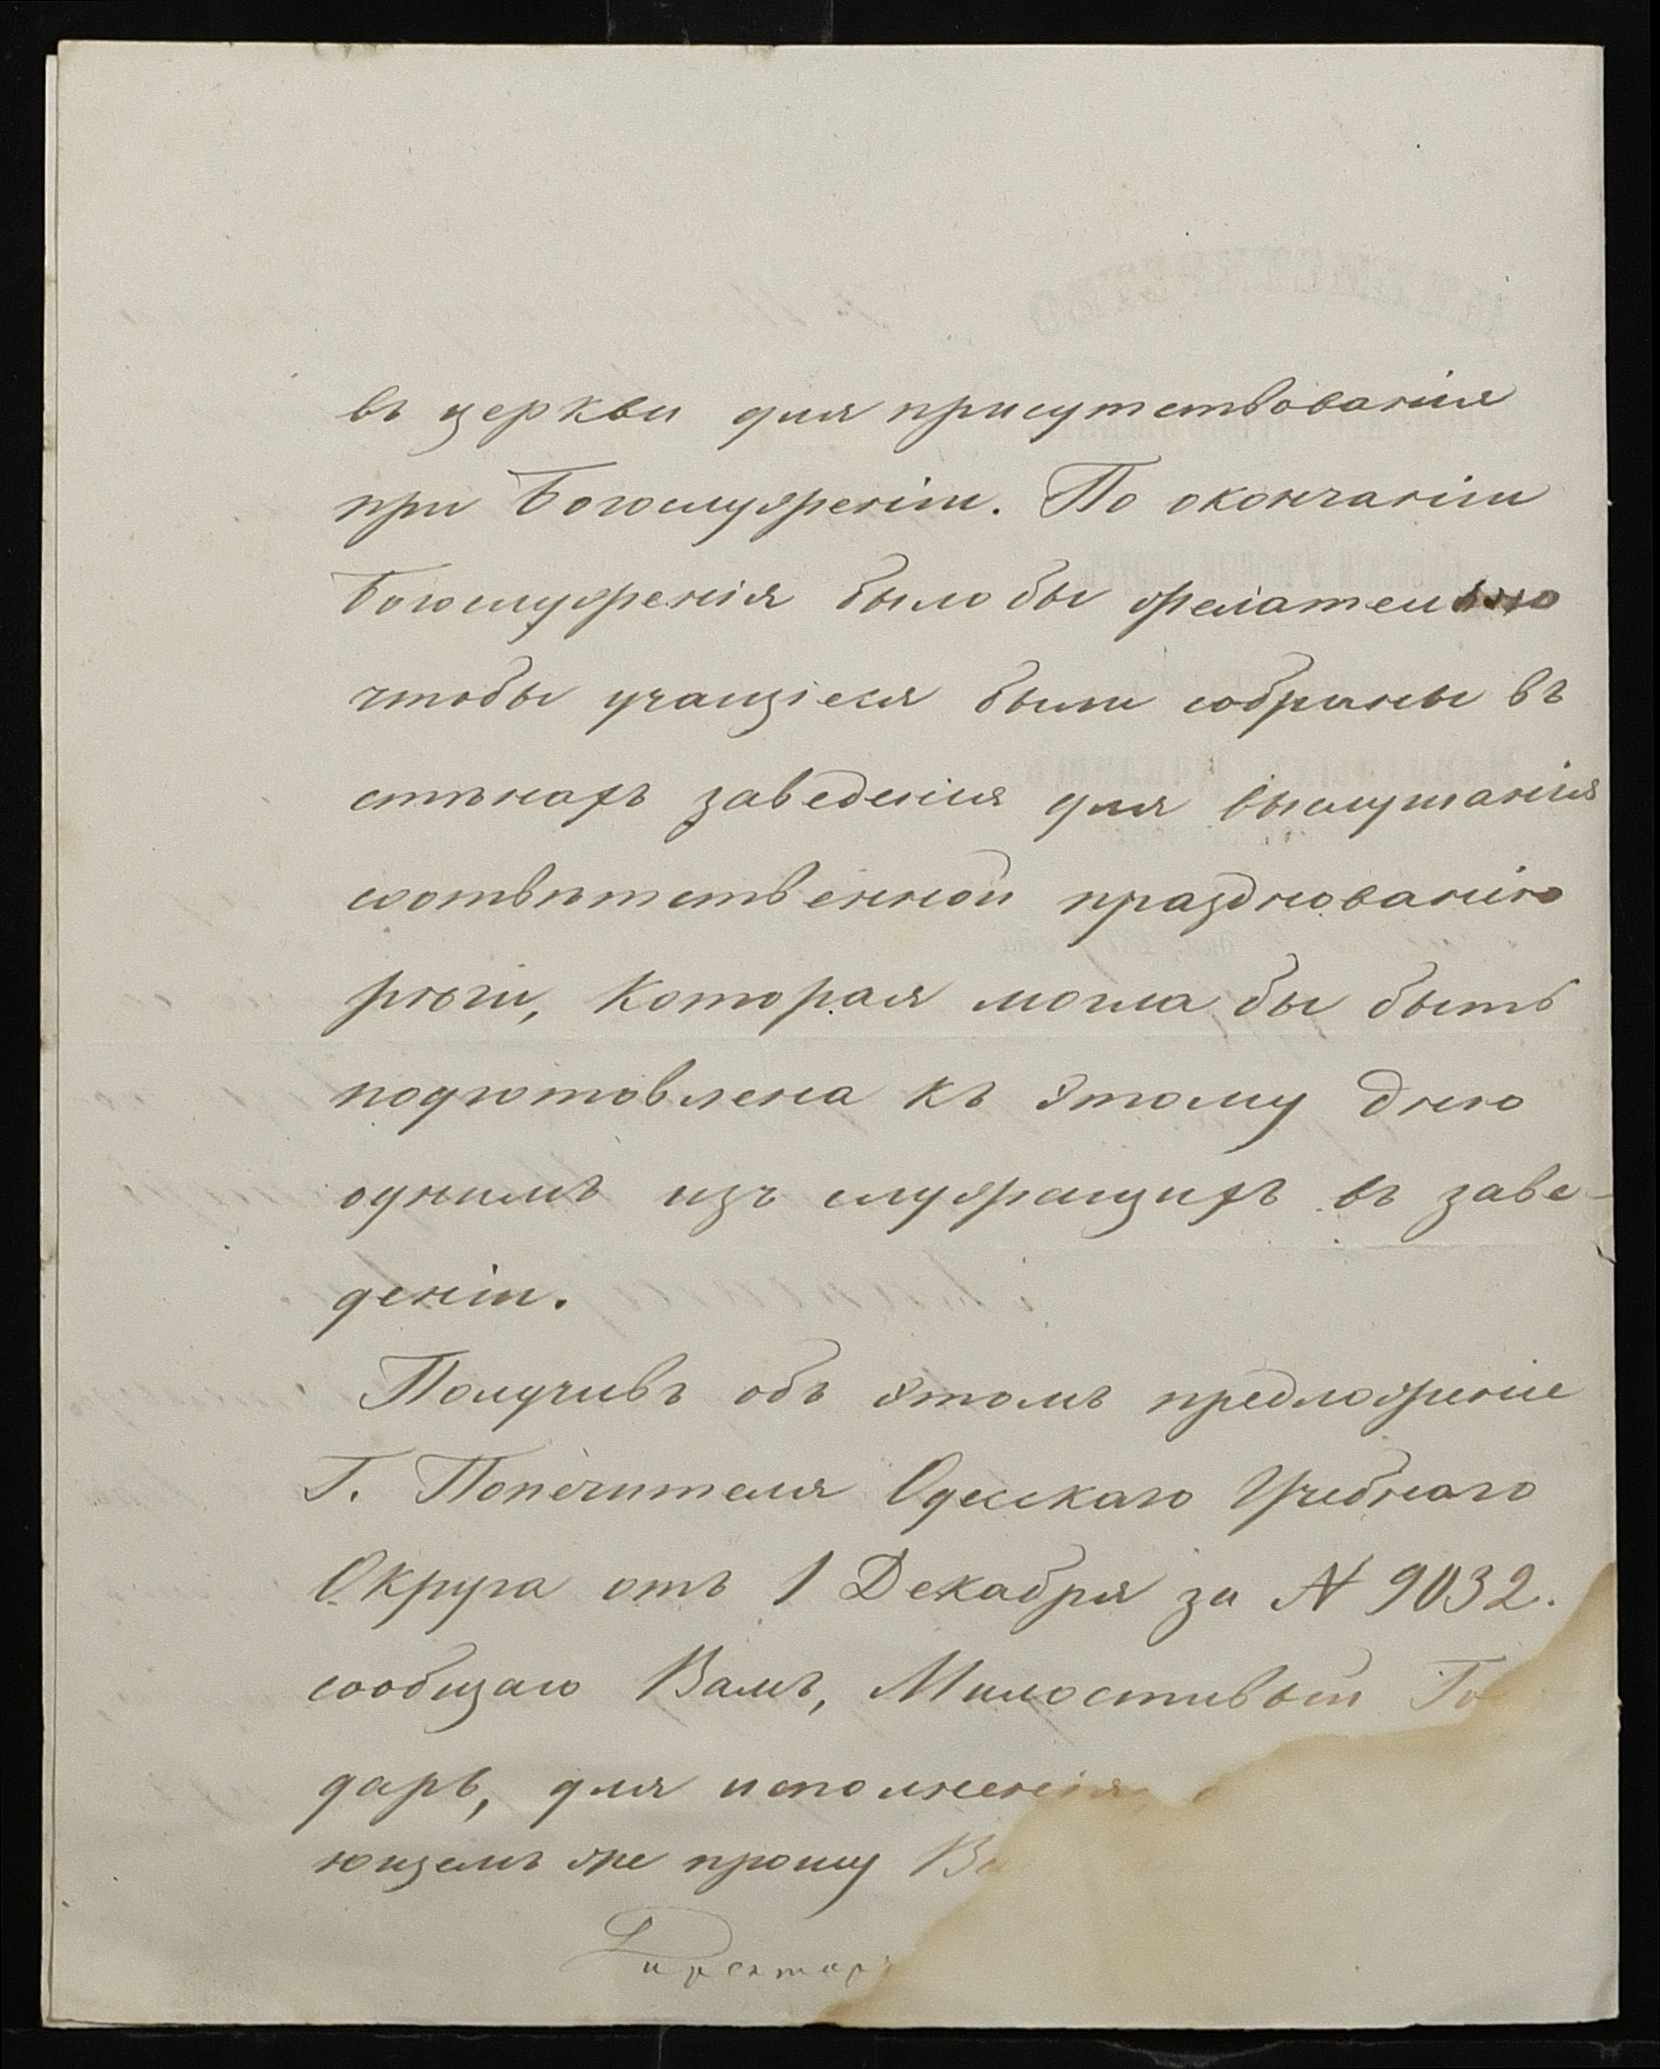 въ церкви для присутствованія
при Богослуженіи. По окончаніи
Богослуженія было бы желательно
чтобы учащіеся были собраны въ
стѣнахъ заведенія для выслушанія
соотвѣтственной празднованію
рѣчи, которая могла бы быть
подготовлена къ этому дню
однимъ изъ служащихъ въ заве-
деніи.
Получивъ объ этомъ предложеніе
Г. Попечителя Одесскаго Учебнаго
Округа отъ 1 Декабря за № 9032.
сообщаю Вамъ, Милостивый Го
дарь, для исполненія,
ющемъ же прошу
Директоръ